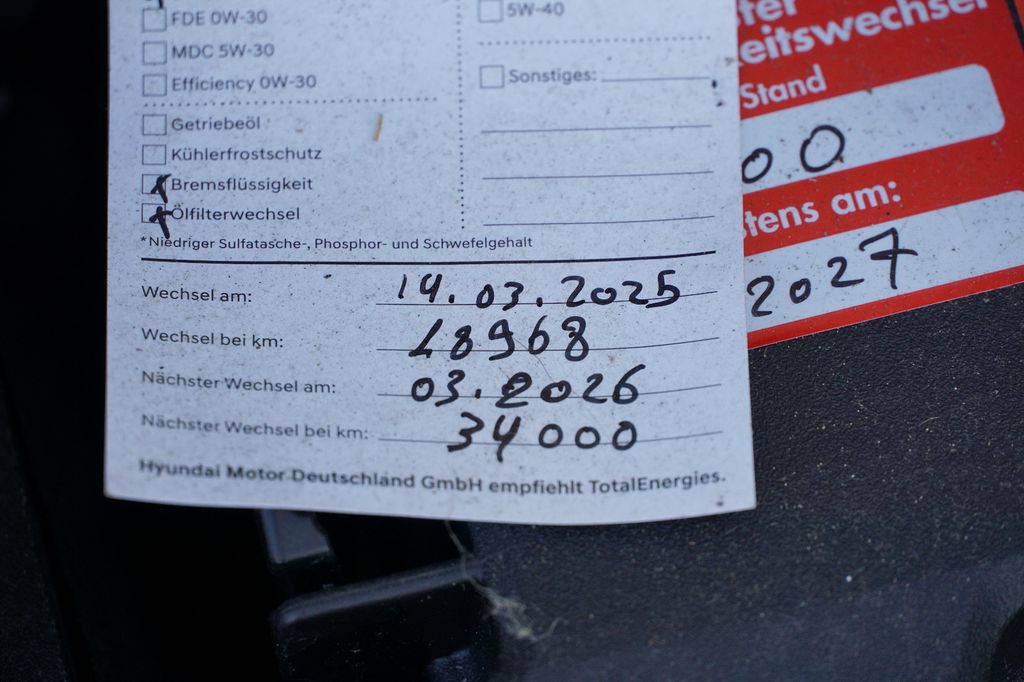 FDE 0W-30
MDC 5W-30
Efficiency 0W-30
Getriebeöl
Kühlerfrostschutz
Bremsflüssigkeit
Ölfilterwechsel
5W-40
Sonstiges:
*Niedriger Sulfatasche-, Phosphor- und Schwefelgehalt
Wechsel am: 14.03.2025
Wechsel bei km: 18968
Nächster Wechsel am: 03.2026
Nächster Wechsel bei km: 34000
Hyundai Motor Deutschland GmbH empfiehlt TotalEnergies.
ter
eitswechsel
Stand
00
tens am:
2027